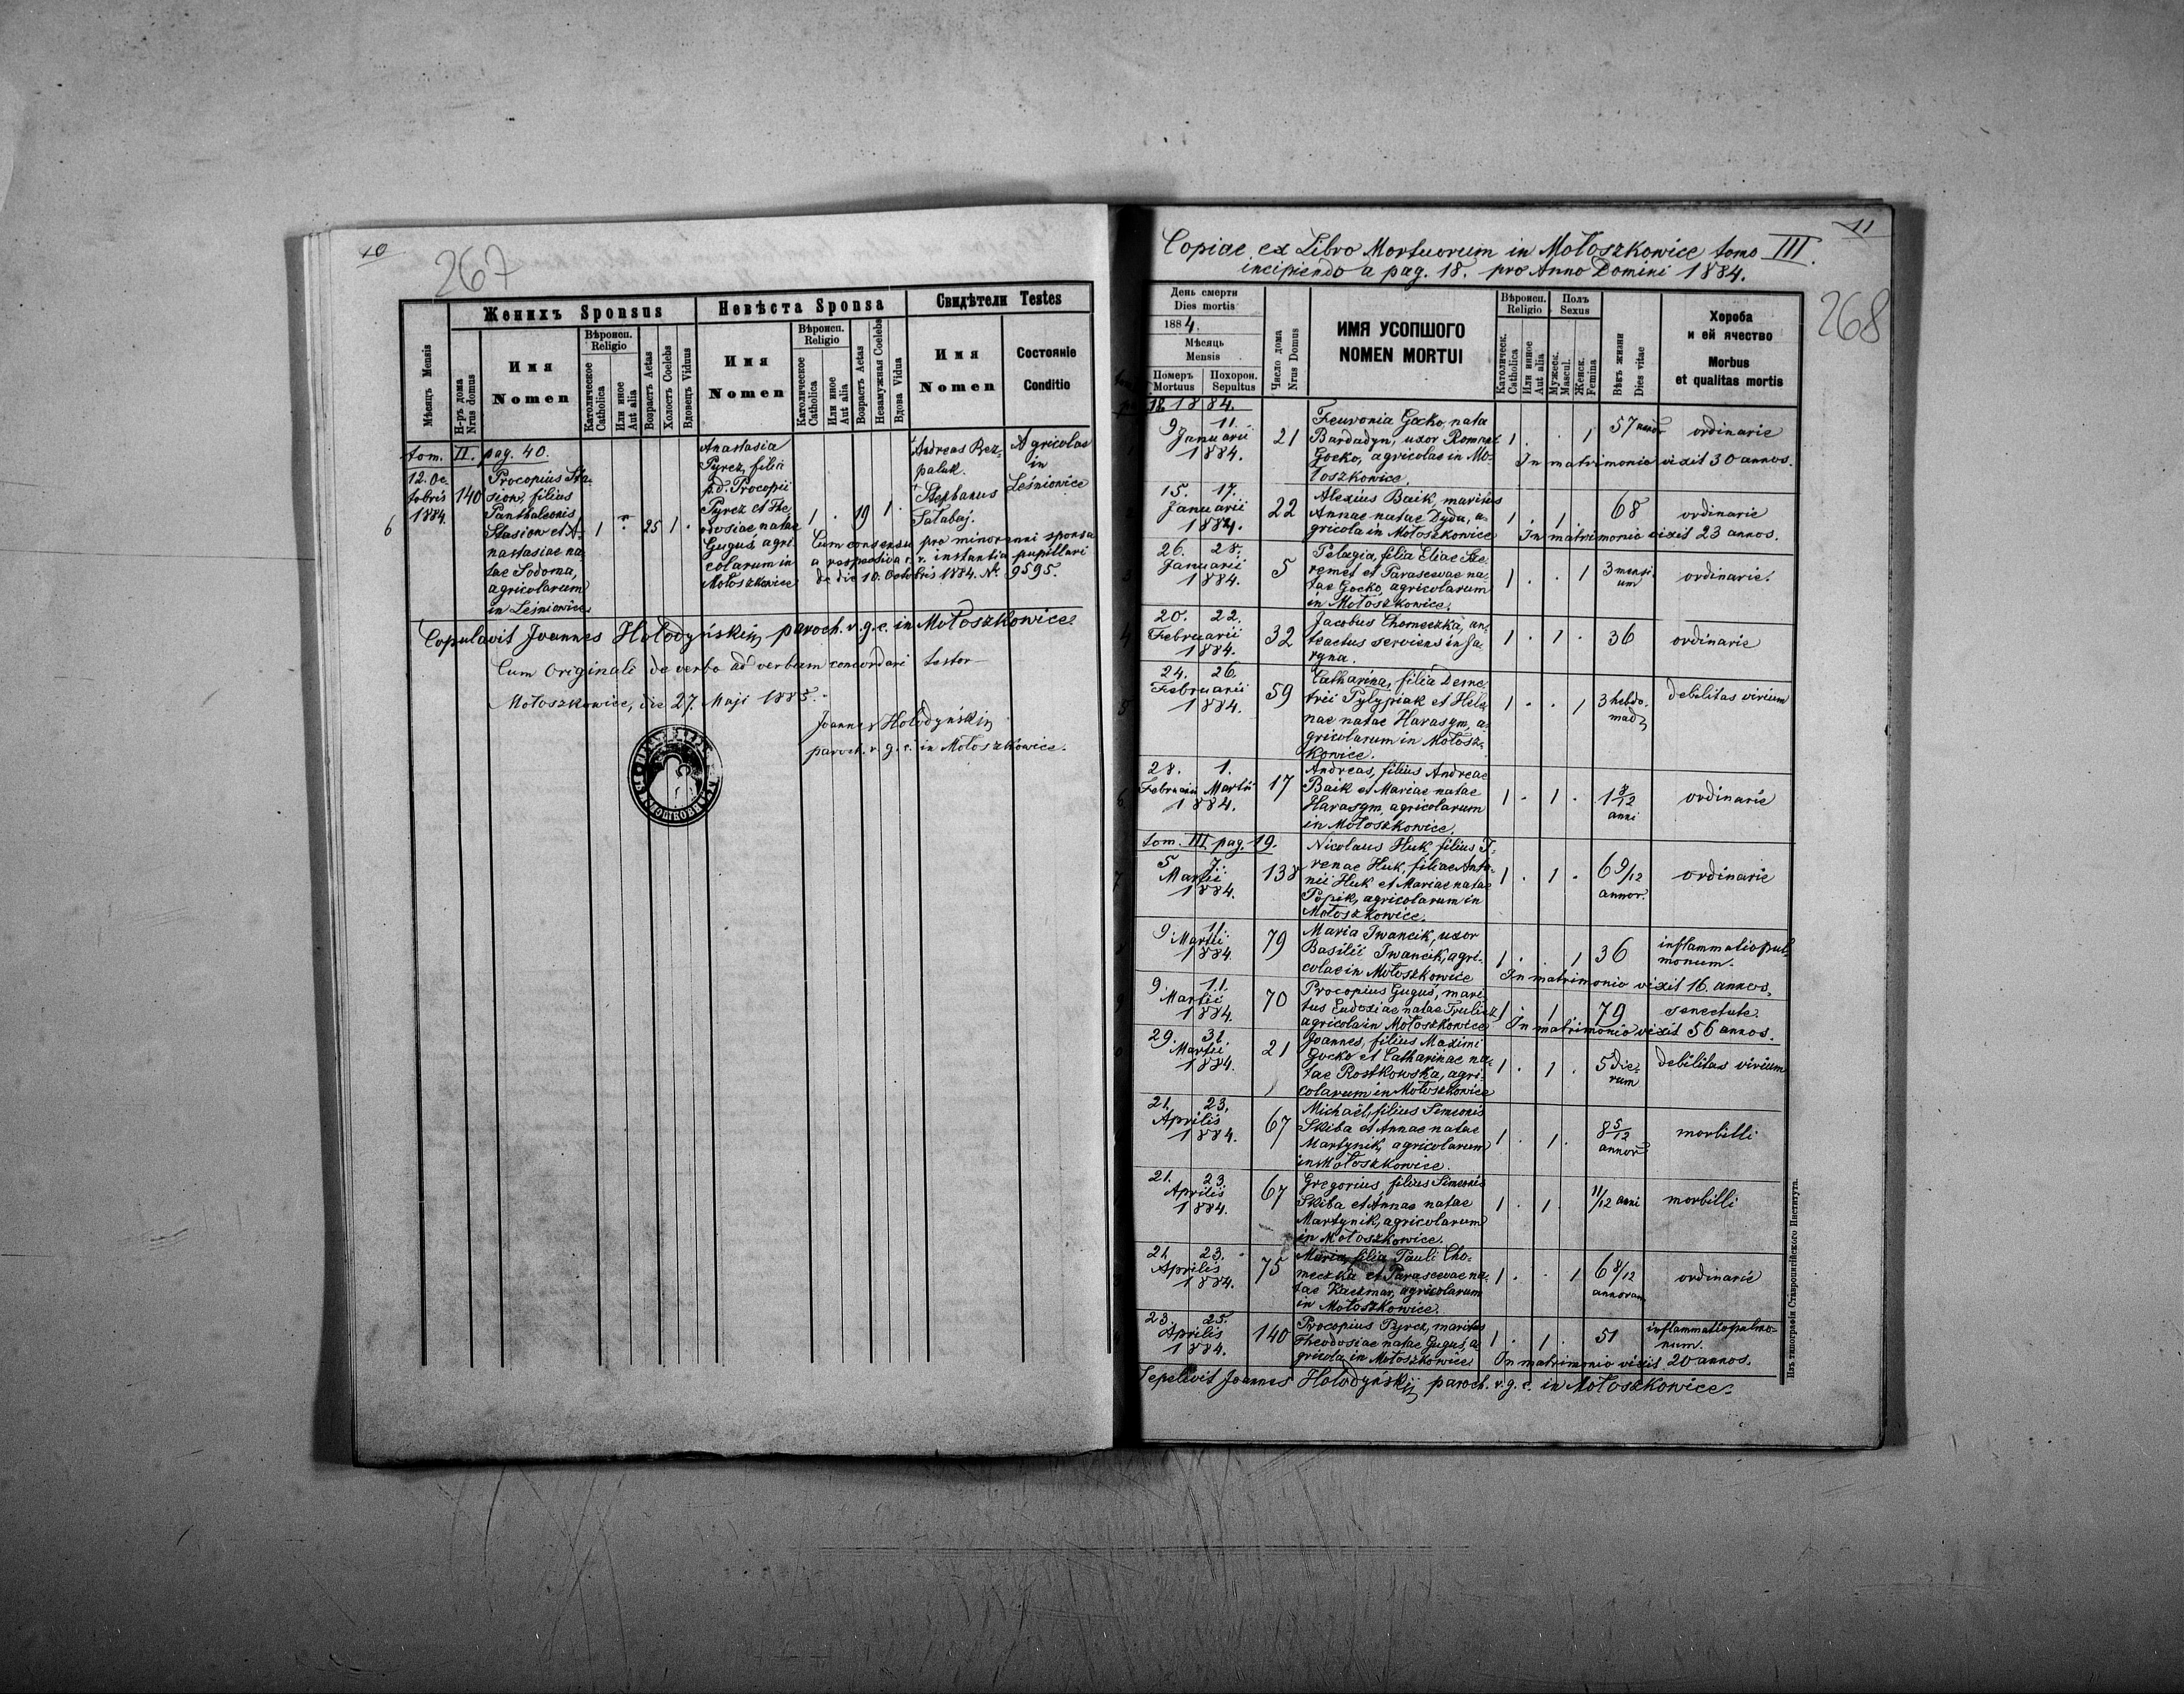 10
267
Мѣсяць Mensis
Женихъ Sponsus
Невѣста Sponsa
Свидѣтели Testes
Н-ръ дома
Nrus domus
Имя
Nomen
Вѣроисп.
Religio
Католическое
Catholica
Или иное
Aut alia
Возрастъ Aetas
Холостъ Coelebs
Вдовецъ Vidus
Имя
Nomen
Вѣроисп.
Religio
Католическое
Catholica
Или иное
Aut alia
Возрастъ Aetas
Незамужная Coelebs
Вдова Vidua
Имя
Nomen
Состояніе
Conditio
tom. II. pag. 40.
6
12. Oc-
tobris
1884.
140
Procopius Sta-
siow, filius
Panthaleonis
Stasiow et A-
nastasiae na-
tae Sodoma,
agricolarum
in Leśniowice
1 . 25 1 .
Anastasia
Pyrcz, filia
p.d. Procopii
Pyrcz et The-
odosiae natae
Guguś, agri-
colarum in
Mołoszkowice
1 . 19 1 .
Andreas
paluk.
Stephanus
Agricolae
in
Leśniowice
Cum consensu pro minorenni sponsa
a respectiva r. instantia pupillari
de die 10. Octobris 1884. N. 9595.
Copulavit Joannes Hołodyńskij, paroch. r. g. c. in Mołoszkowice.
Cum Originali de verbo ad verbum concordari testor
Mołoszkowice, die 27. Maji 1885.
Joannes Hołodyńskij
paroch. r. g. c. in Mołoszkowice.
11
268
Copiae ex Libro Mortuorum in Mołoszkowice tomo III.
incipiendo a pag. 18. pro Anno Domini 1884.
День смерти
Dies mortis
1884.
Мѣсяць
Mensis
Померъ
Mortuus
Похорон.
Sepultus
Число дома
Nrus Domus
ИМЯ УСОПШОГО
NOMEN MORTUI
Вѣроисп.
Religio
Католическ.
Catholica
Или инное
Aut alia
Полъ
Sexus
Мужеск.
Mascul.
Женск.
Femina
Вѣкъ жизни
Dies vitae
Хороба
и ей ячество
Morbus
et qualitas mortis
18. 1884.
9. 11.
Januarii
1884.
21
Feuronia Gocko, nata
Bardadyn, uxor Romani
Gocko, agricolae in Mo-
łoszkowice.
1 . . 1
57
ordinarie
In matrimonio vixit 30 annos.
15. 17.
Januarii
1884.
22
Alexius Baik, maritus
Annae natae Dyda, a-
gricola in Mołoszkowice
1 . 1 .
68
ordinarie
In matrimonio vixit 23 annos.
26. 28.
Januarii
1884.
5
Pelagia, filia Eliae Sze-
remet et Parascevae na-
tae Gocko, agricolarum
in Mołoszkowice.
1 . . 1
3 mensi-
um
ordinarie.
20. 22.
Februarii
1884.
32
Jacobus Chomeczka,
serviens in Ja-
ryna.
1 . 1 .
36
ordinarie
24. 26.
Februarii
1884.
59
Catharina, filia Deme-
trii Pylypiak et Hele-
nae natae Harasym, a-
gricolarum in Mołosz-
kowice.
1 . . 1
3 hebdo-
mad
debilitas virium
28. 1.
Februarii Martii
1884.
17
Andreas, filius Andreae
Baik et Mariae natae
Harasym, agricolarum
in Mołoszkowice.
1 . 1 .
anni
ordinarie
tom. III. pag. 19.
5 7.
Martii
1884.
138
Nicolaus Huk, filius I-
renae Huk, filiae Anto-
nii Huk et Mariae natae
Popik, agricolarum in
Mołoszkowice.
1 . 1 .
6 9/12
annor.
ordinarie
9. 11.
Martii
1884.
79
Maria Iwancik, uxor
Basilii Iwancik, agri-
colae in Mołoszkowice
1 . . 1
36
inflammatio pul-
monum.
In matrimonio vixit 16. annos.
9. 11.
Martii
1884.
70
Procopius Guguś, mari-
tus Eudoxiae natae
agricola in Mołoszkowice
1 . 1 .
79
senectute.
In matrimonio vixit 56 annos.
29. 31.
Martii
1884.
21
Joannes, filius Maximi
Gocko et Catharinae na-
tae Rostkowska, agri-
colarum in Mołoszkowice
1 . 1 .
5 die-
rum
debilitas virium
21. 23.
Aprilis
1884.
67
Michaël, filius Simeonis
Skiba et Annae natae
Martynik, agricolarum
in Mołoszkowice.
1 . 1 .
8 5/12
annor
morbilli
21. 23.
Aprilis
1884.
67
Gregorius, filius Simeonis
Skiba et Annae natae
Martynik, agricolarum
in Mołoszkowice.
1 . 1 .
11/12 anni
morbilli
21. 23.
Aprilis
1884.
75
Maria, filia Pauli Cho-
meczka et Parascevae na-
tae Kaczmar, agricolarum
in Mołoszkowice.
1 . . 1
6 8/12
annorum
ordinarie
23. 25.
Aprilis
1884.
140
Procopius Pyrcz, maritus
Theodosiae natae Guguś, a-
gricola in Mołoszkowice
1 . 1 .
51
inflammatio pulmo-
num.
In matrimonio vixit 20 annos.
Sepelivit Joannes Hołodyńskij, paroch. r. g. c. in Mołoszkowice.
Изъ типографіи Ставропигійского Института.